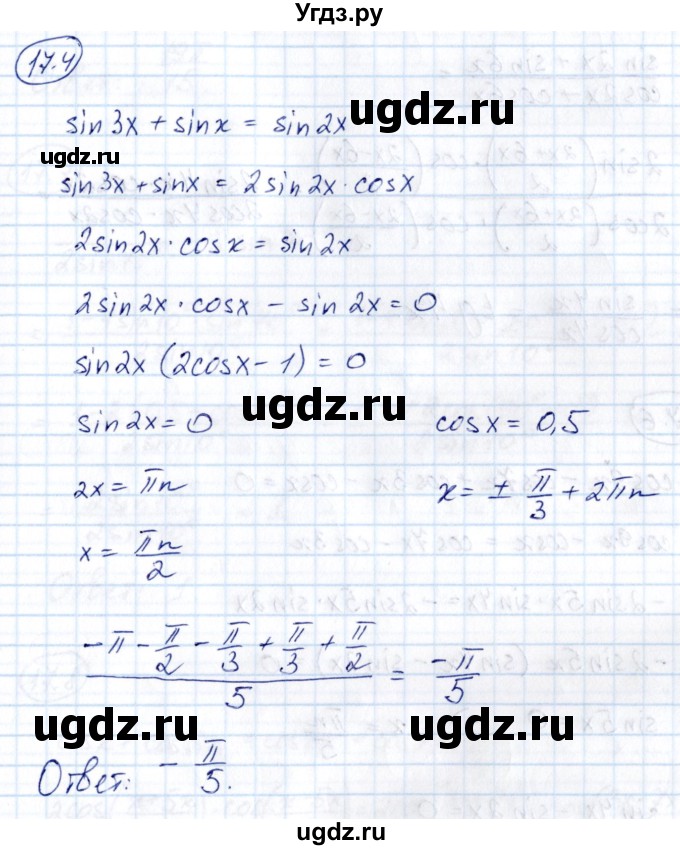 Угдз.ру
17.4
sin 3x + sin x = sin 2x
ugdz.ru
ugdz.ru
sin 3x + sin x = 2 sin 2x · cos x
2 sin 2x · cos x = sin 2x
ugdz.ru
2 sin 2x · cos x − sin 2x = 0
sin 2x (2cos x − 1) = 0
ugdz.ru
sin 2x = 0    cos x = 0,5
2x = πn    x = ± π/3 + 2πn
x = πn/2
ugdz.ru
(−π − π/2 − π/3 + π/3 + π/2)/5 = −π/5
ugdz.ru
ugdz.ru
Ответ: − π/5.
ugdz.ru
ugdz.ru